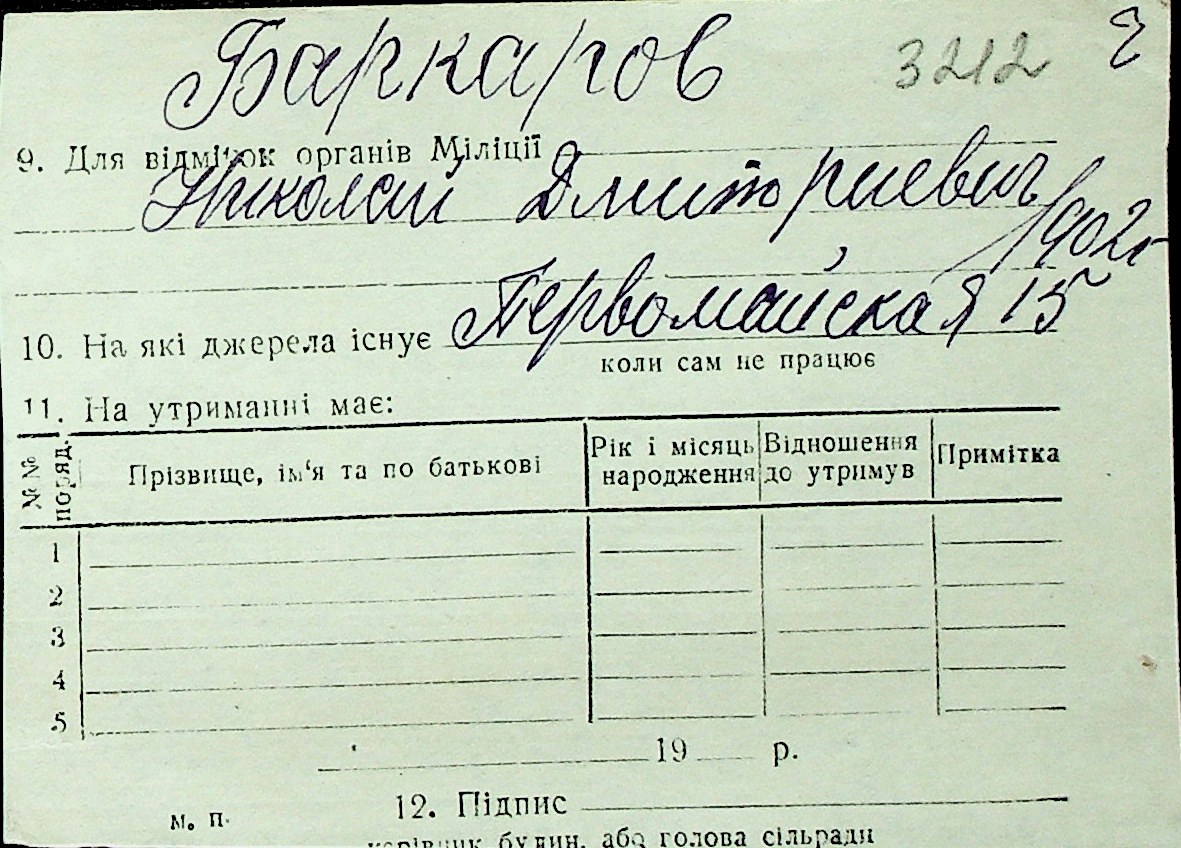 Баркаров 3212
9. Для відміток органів Міліції
Николай Дмитриевич
1902г
10. На які джерела існує Первомайская 15
коли сам не працює
11. На утриманні має:
№№ поряд. Прізвище, ім‘я та по батькові Рік і місяць народження Відношення до утримув Примітка
1
2
3
4
5
19 р.
м. п. 12. Підпис
керівник будин. або голова сільради